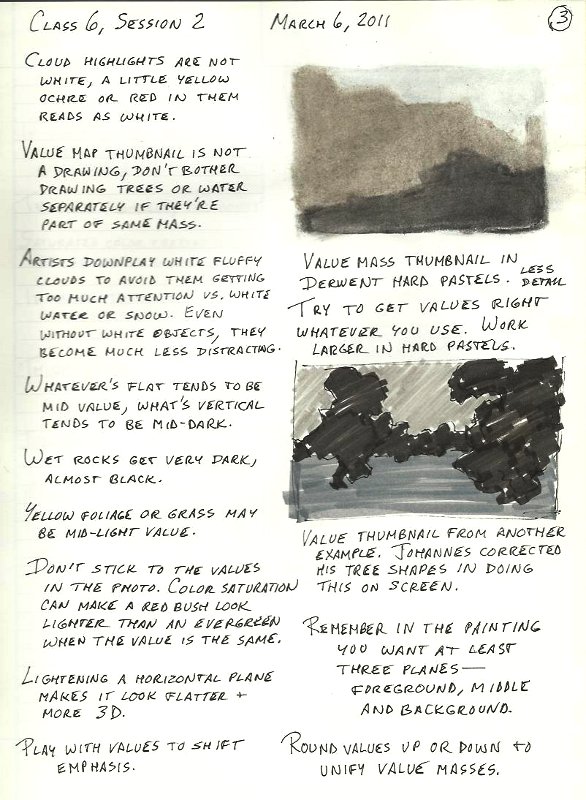 Class 6, Session 2
March 6, 2011
3
Cloud highlights are not
white, a little yellow
ochre or red in them
reads as white.
Value map thumbnail is not
a drawing, don't bother
drawing trees or water
separately if they're
part of same mass.
Artists downplay white fluffy
clouds to avoid them getting
too much attention vs. white
water or snow. Even
without white objects, they
become much less distracting.
Whatever's flat tends to be
mid value, what's vertical
tends to be mid-dark.
Wet rocks get very dark,
almost black.
Yellow foliage or grass may
be mid-light value.
Don't stick to the values
in the photo. Color saturation
can make a red bush look
lighter than an evergreen
when the value is the same.
Lightening a horizontal plane
makes it look flatter +
more 3D.
Play with values to shift
emphasis.
Value mass thumbnail in
Derwent hard pastels. Less
detail
Try to get values right
whatever you use. Work
larger in hard pastels.
Value thumbnail from another
example. Johannes corrected
his tree shapes in doing
this on screen.
Remember in the painting
you want at least
three planes—
foreground, middle
and background.
Round values up or down to
unify value masses.